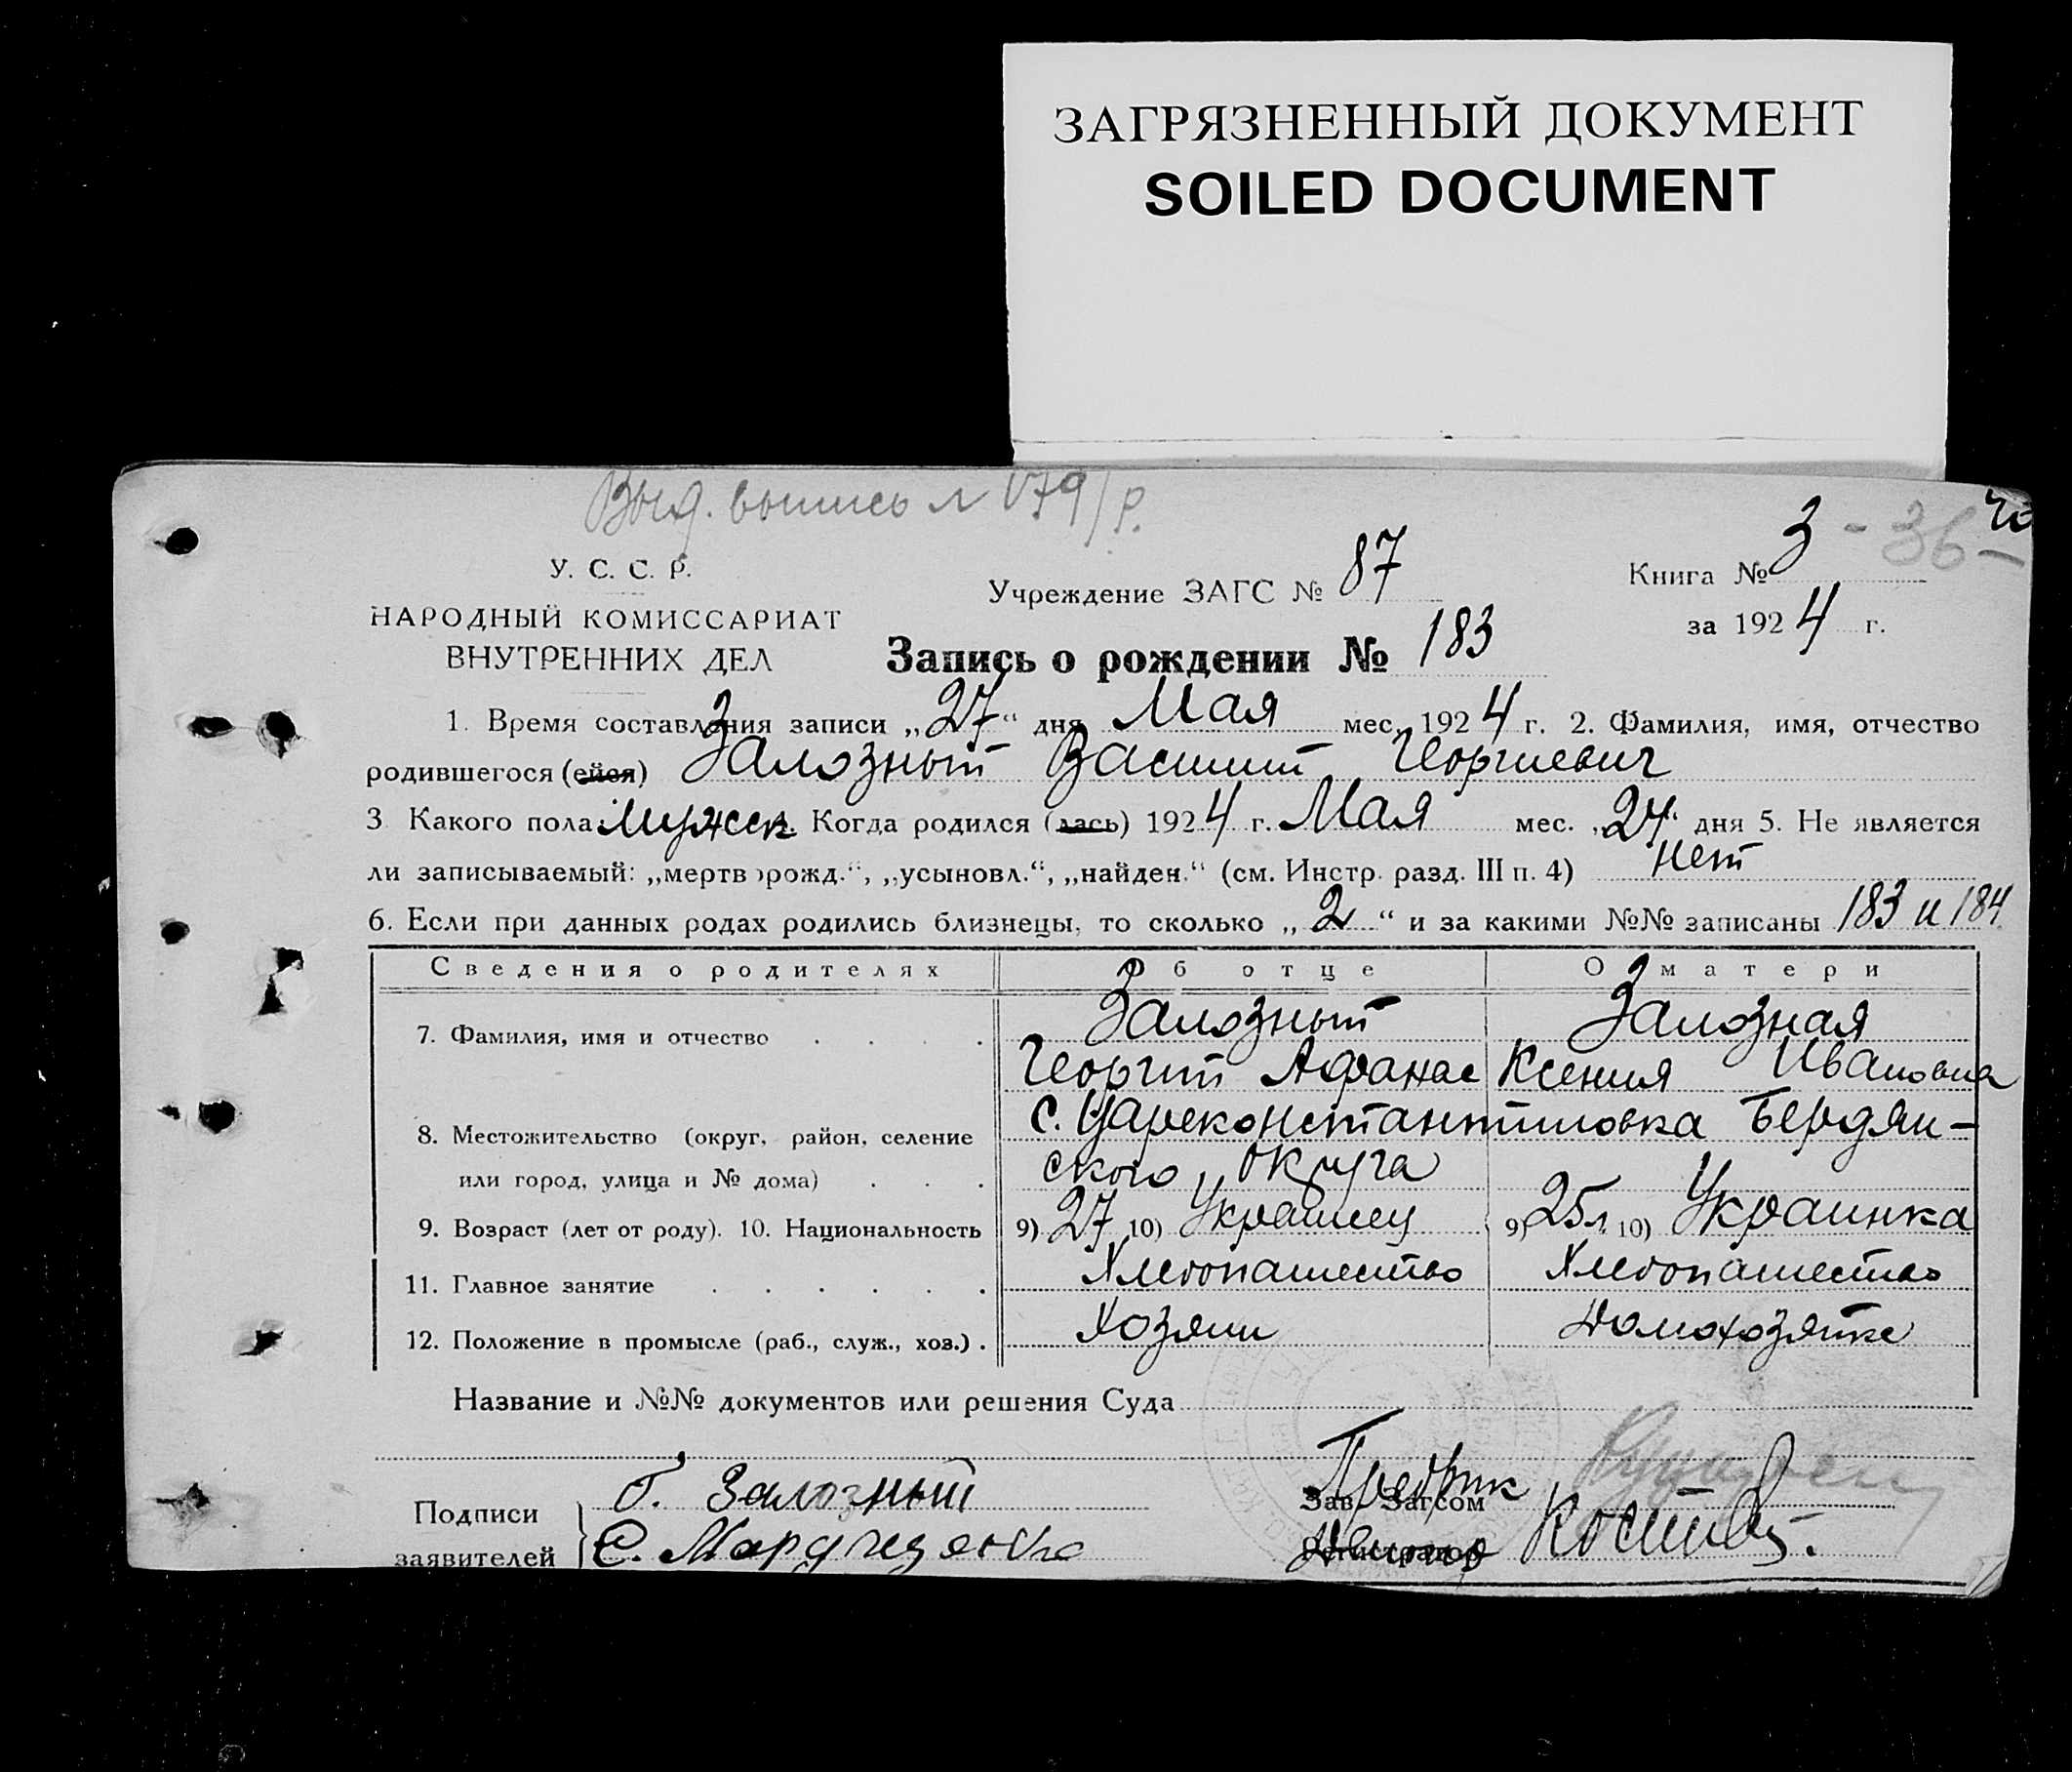 ЗАГРЯЗНЕННЫЙ ДОКУМЕНТ
SOILED DOCUMENT
Выд. выпись № 179/р.
3 - 36 -
У. С. С. Р.
НАРОДНЫЙ КОМИССАРИАТ
ВНУТРЕННИХ ДЕЛ
Учреждение ЗАГС № 87
Запись о рождении № 183
Книга № 3
за 1924 г.
1. Время составления записи „27“ дня Мая мес. 1924 г. 2. Фамилия, имя, отчество
родившегося (ейся) Залозный Василий Георгиевич
3 Какого пола Мужск. Когда родился (лась) 1924 г. Мая мес. „24“ дня 5. Не является
ли записываемый: „мертворожд.“, „усыновл.“, „найден.“ (см. Инстр. разд. III п. 4) нет
6. Если при данных родах родились близнецы, то сколько „2“ и за какими №№ записаны 183 и 184
Сведения о родителях Об отце О матери
7. Фамилия, имя и отчество . . . . Залозный Залозная
Георгий Афанас Ксения Ивановна
8. Местожительство (округ, район, селение с. Цареконстантиновка Бердян-
или город, улица и № дома) . . . ского округа
9. Возраст (лет от роду). 10. Национальность 9) 27 10) Украинец 9) 25 л 10) Украинка
11. Главное занятие . . . . . . Хлебопашество Хлебопашество
12. Положение в промысле (раб., служ., хоз.) . Хозяин Домохозяйка
Название и №№ документов или решения Суда
Подписи
заявителей
Г. Залозный
Зав. Загсом
Регистратор